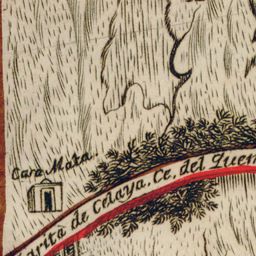 Cara Mota.
arita de Celaya. Ce. del Quem